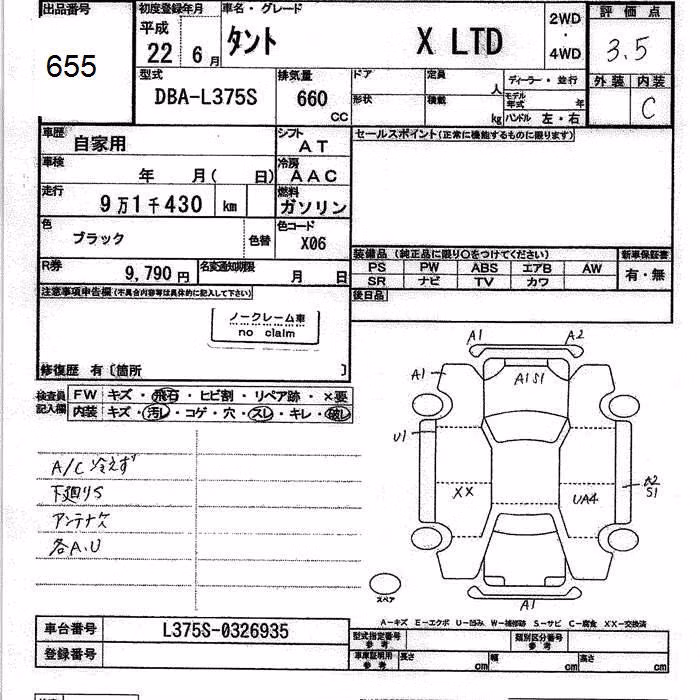 出品番号 初度登録年月 車名・グレード 評価点
655 平成 22 6月 タント X LTD 2WD ・ 4WD 3.5
型式 排気量 ドア 定員 人 ディーラー・並行 外装 内装
DBA-L375S 660 CC 形状 積載 kg モデル年式 年 C
ハンドル 左・右
車歴 自家用 シフト AT セールスポイント(正常に機能するものに限ります)
車検 年 月( 日) 冷房 AAC
走行 9万1千430 km 燃料 ガソリン
色 ブラック 色替 色コード X06
装備品 (純正品に限り〇をつけてください) 新車保証書
R券 9,790円 名変通知期限 月 日 PS PW ABS エアB AW 有・無
SR ナビ TV カワ
注意事項申告欄(不具合内容等は具体的に記入して下さい) 後日品
ノークレーム車
no claim
修復歴 有〔箇所 〕
検査員記入欄 FW キズ・飛石・ヒビ割・リペア跡・×要
内装 キズ・汚レ・コゲ・穴・スレ・キレ・破レ
A1 A2
A1 A1 S1
U1
A/C冷えず
XX UA4 A2 S1
下廻りS
アンテナ欠
各A.U
スペア A1
A−キズ E−エクボ U−凹み W−補修跡 S−サビ C−腐食 XX−交換済
車台番号 L375S-0326935 型式指定番号 参考 類別区分番号 参考
登録番号 車庫証明用 参考 長さ cm 幅 cm 高さ cm